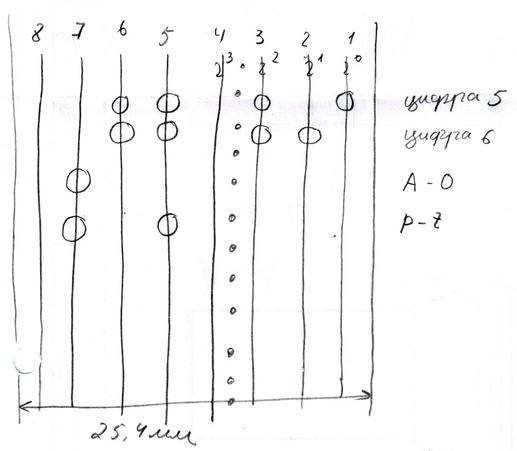 8 7 6 5 4 3 2 1
2³ 2² 2¹ 2⁰
цифра 5
цифра 6
A - O
P - Z
25,4 мм